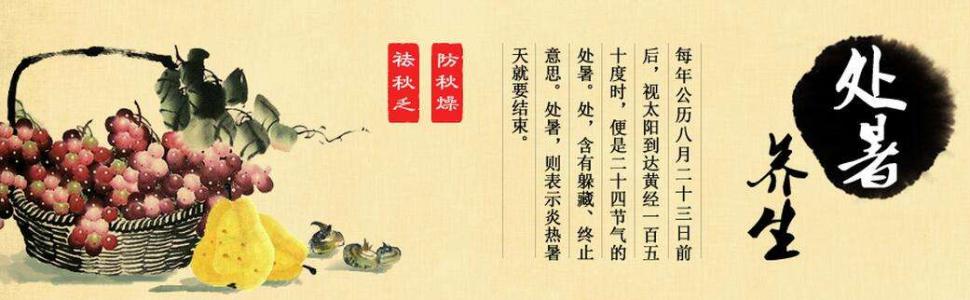 处暑
养生
每年公历八月二十三日前
后，视太阳到达黄经一百五
十度时，便是二十四节气的
处暑。处，含有躲藏、终止
意思。处暑，则表示炎热暑
天就要结束。
防秋燥
祛秋乏